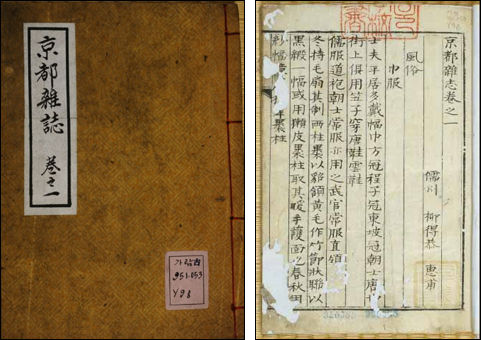 京都雜誌 卷之一
가람古
951.053
Y98
京都雜志卷之一
柳得恭 惠甫
風俗
巾服
士夫平居多戴幅巾方冠程子冠東坡冠朝士唐
街上俱用笠子穿唐鞋雲鞋
儒服道袍朝士常服亦用之武官常服直領
冬持毛扇其制兩柱裹以貂領黃毛作竹節狀聯以
黑緞一幅或用獺皮裹柱取其暖手護面也春秋用
紗幅 裹柱